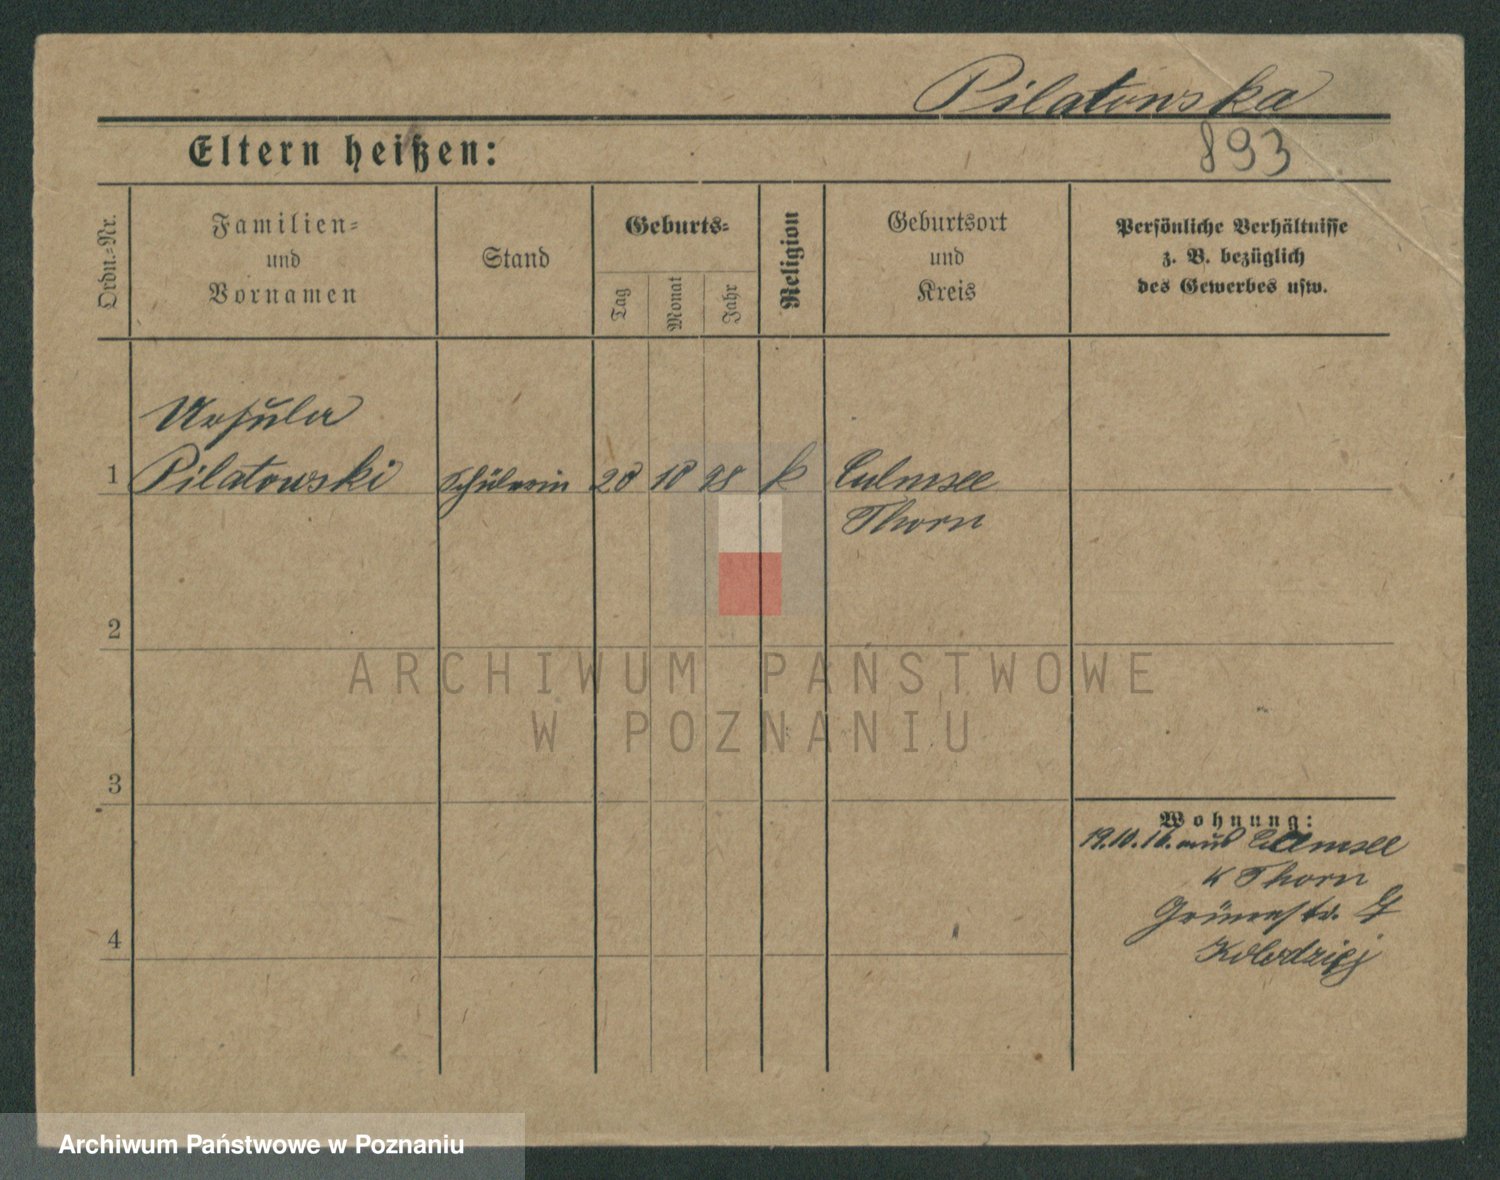 Pilatowska
893
Eltern heißen:
Ordn.-Nr.
Familien-
und
Vornamen
Stand
Geburts-
Tag
Monat
Jahr
Religion
Geburtsort
und
Kreis
Persönliche Verhältnisse
z. B. bezüglich
des Gewerbes usw.
Ursula
1 Pilatowski Schülerin 20 10 98 k Culmsee
Thorn
2
ARCHIWUM PAŃSTWOWE
W POZNANIU
3
Wohnung:
19.10.16. aus Culmsee
K Thorn
Grünestr.
4
Kolodziej
Archiwum Państwowe w Poznaniu